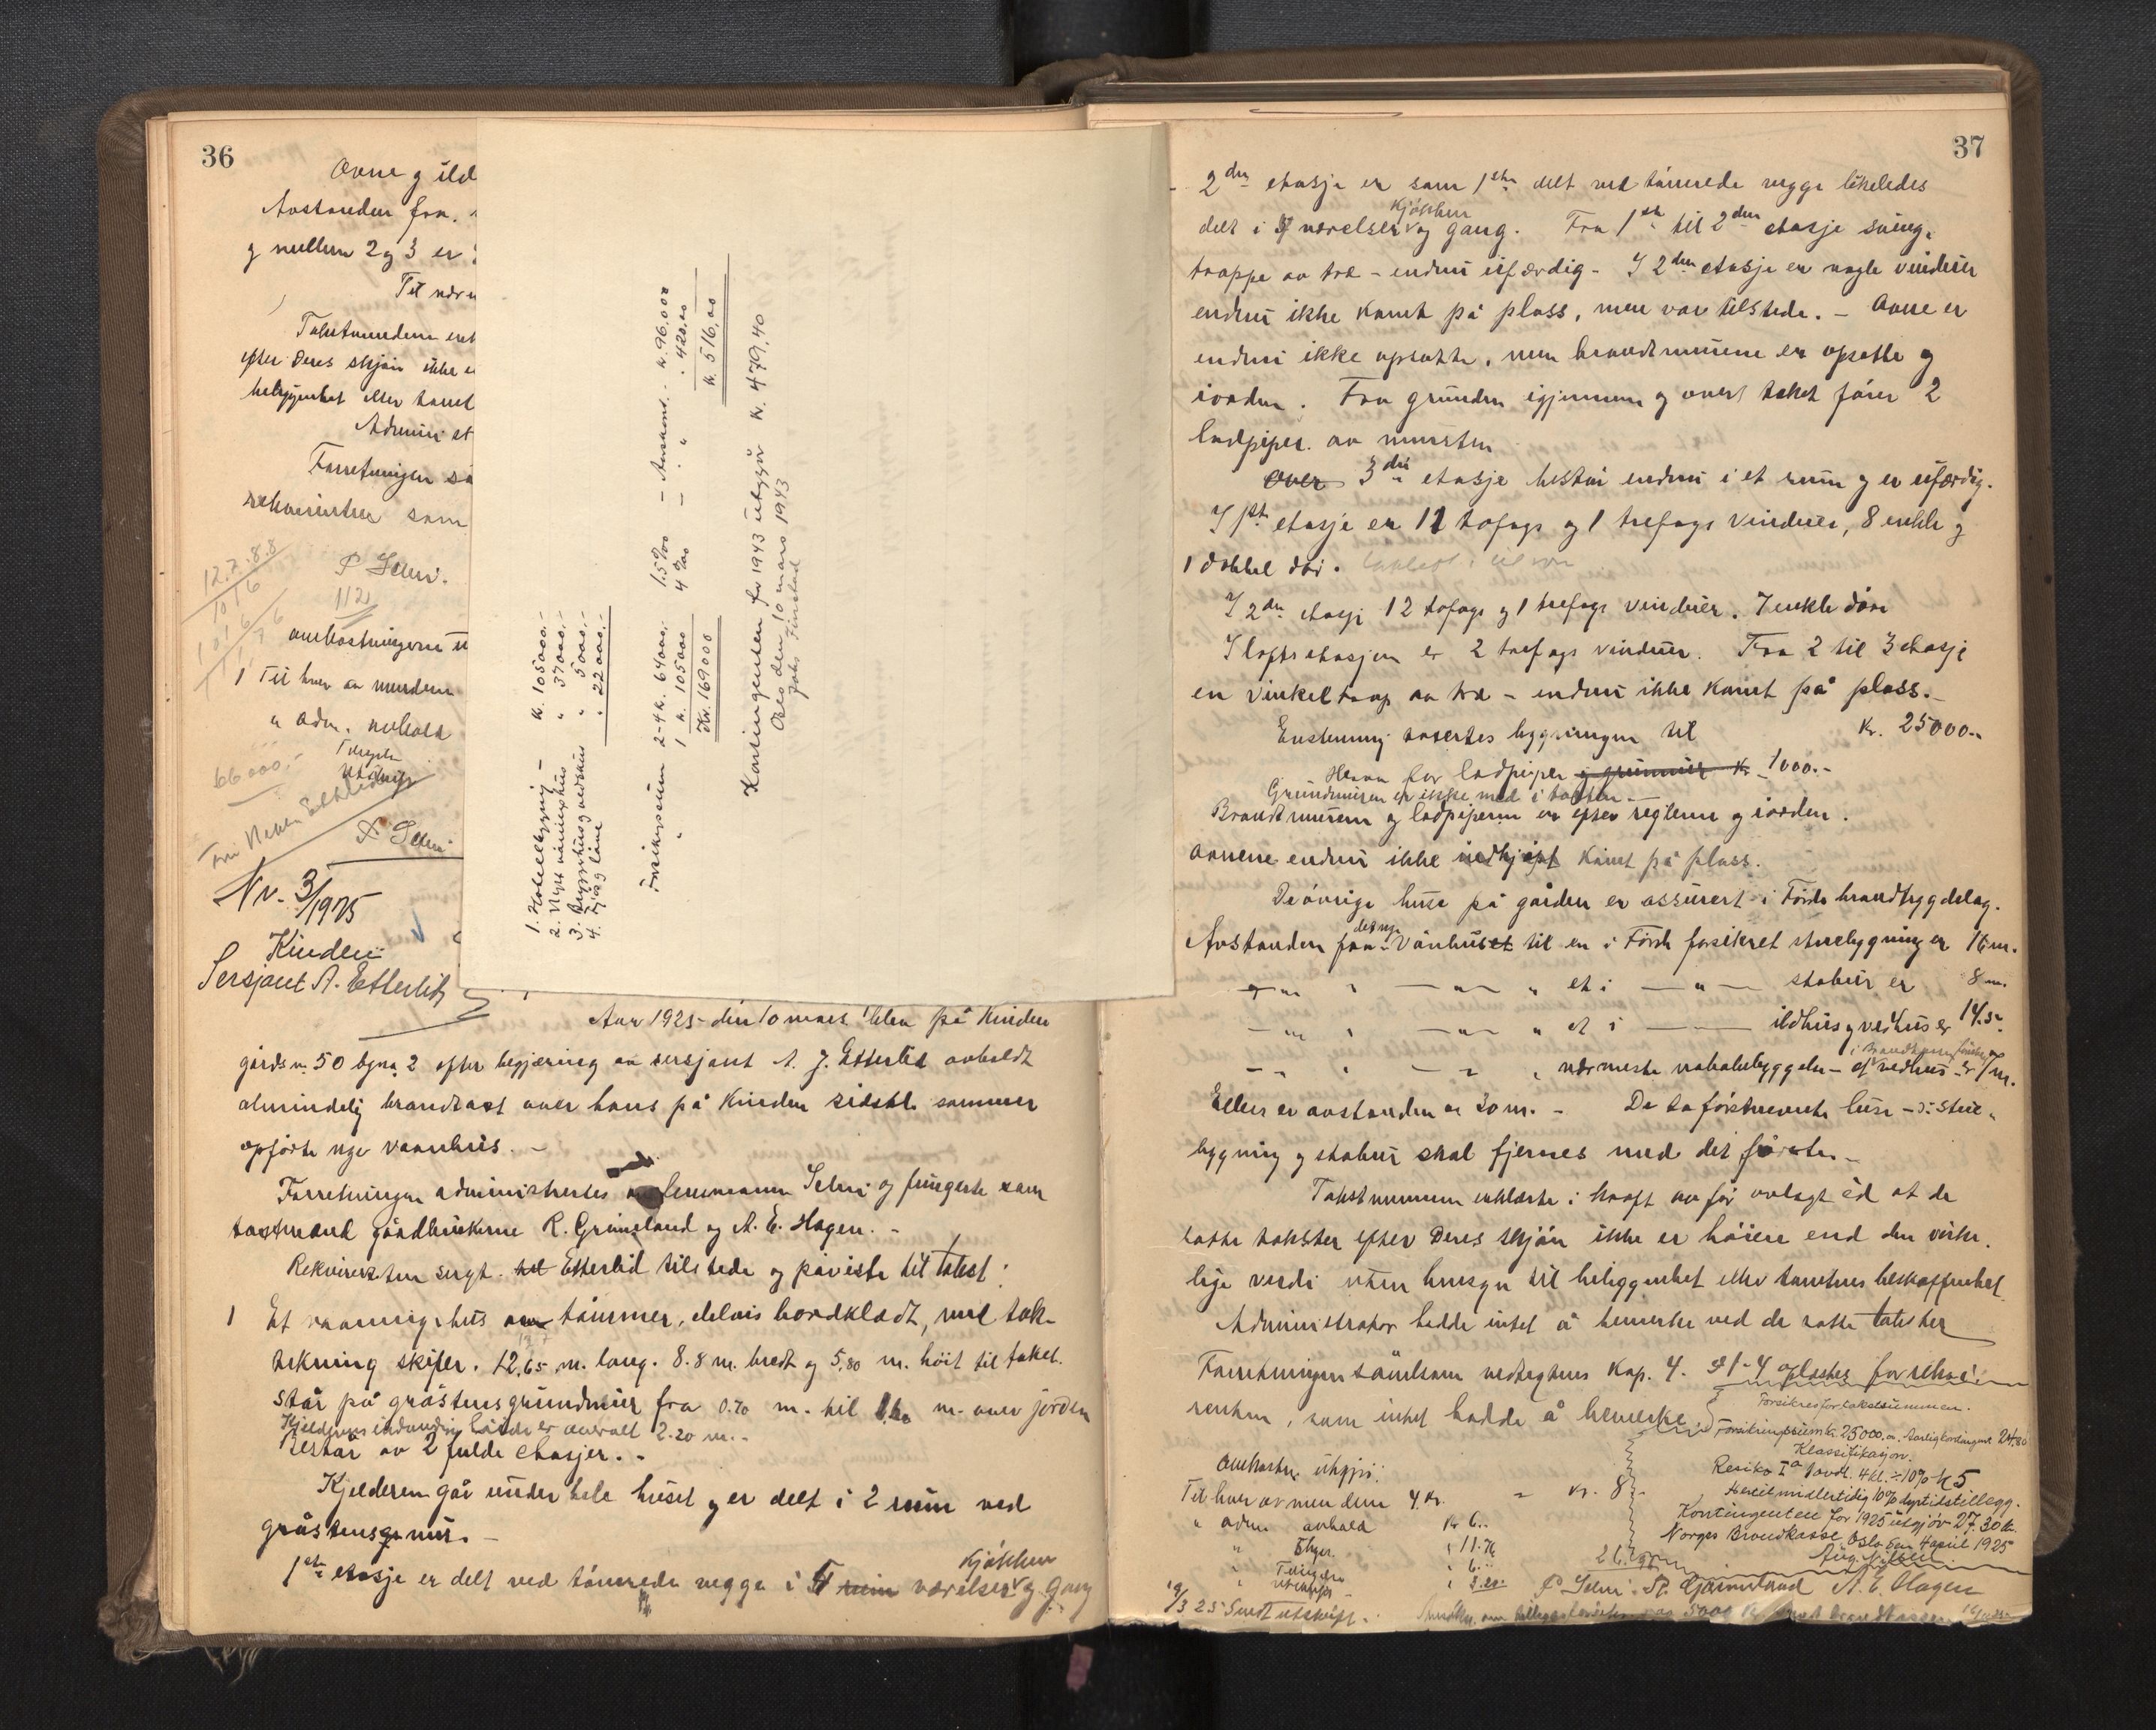 36
Ovne g ild
Avstanden fra.
g mellem 2 g 3 er
Til nær
Takstmændene erk
efter Deres skjøn ikke e
beliggenhet eller tomt
Admini st
Forretningen så
rekvirenten som
12.2.8.8
1016
P Selmi.
112
omkostningerne u
1 Til hver av mændene
" Adm. avhold
66000.-
Utskrift
P Selmi
Nr. 3/1925
Kinden
Sersjant A. Etterlid
1. Hotelbygning - kr. 105000.-
2. Nytt våningshus " 37000.-
3. Bryggerhus og vedskur " 5000.-
4. Fjøs og låve " 22000.-
Forsikringssum 2-4 kr. 64000.- 1.5 ‰ - Årskont. - kr. 96.00
" 1 kr. 105000 4 ‰ - " . 420.00
Kr. 169000 kr. 516,00
Kontingenten for 1943 utgjør kr. 479,40
Oslo den 10 mars 1943
Aar 1925 den 10 mars blev på Kinden
gårdsn. 50 bgna 2 efter begjæring av sersjant A. J. Etterlid avholdt
almindelig brandtakst over hans på Kinden sidste sommer
opførte nye vaanhus. -
Forretningen administrertes av lensmann Selmi og fungerte som
takstmænd gårdbrukerne R. Grimeland og A. E. Hagen. -
Rekvirenten sergt. Etterlid tilstede og påviste til takst:
1 Et vaaningshus av tømmer, delvis bordklædt, med tak-
tekning skifer. 12,65 m. lang. 8.8 m. bredt og 5,80 m. høit til taket.
står på gråstensgrundmur fra 0.70 m. til m. over jorden
Kjelderens indvendig høide er overalt 2.20 m. -
Består av 2 fulde etasjer. -
Kjelderen går under hele huset g er delt i 2 rum ved
gråstensmur. -
1ste etasje er delt ved tømrede vegge i rum værelser kjøkken g gang
37
- 2den etasje er som 1ste delt ved tømrede vegge likeledes
delt i værelser kjøkken og gang. Fra 1ste til 2den etasje sving-
trappe av træ - endnu uferdig - I 2den etasje er nogle vinduer
endnu ikke komt på plass, men var tilstede. - Ovne er
endnu ikke opsatte, men brandmurene er opsatte g
iorden. Fra grunden igjennem g over taket fører 2
ladpiper av mursten
Over 3die etasje består endnu i et rum g er uferdig.
I 1ste etasje er 11 tofags og 1 trefags vinduer, 8 enkle g
1 dobbel dør.
I 2den etasje 12 tofags g 1 trefags vinduer. 7 enkle døre
I loftsetasjen er 2 trefags vinduer. Fra 2 til 3 etasje
en vinkeltrap av træ - endnu ikke komt på plass. -
Enstemmig taxertes bygningen til kr. 25000.-
Herav for ladpiper g grunmur kr 1000.-
Grundmuren er ikke med i taksten -
Brandmurene g ladpiperne er efter reglerne g iorden.
Ovnene endnu ikke indkjøpt komt på plass.
De øvrige huse på gården er assurert i Førde brandbygdelag.
Avstanden fra det nye vånhuset til en i Førde forsikret stuebygning er 16 m.
- " - " et i - " - stabur er 8 m.
- " - " - " et i - ildhus g vedhus er 14.5
- " - " nærmeste nabobebyggelse - et vedhus - er 7 m.
Ellers er avstanden er 30 m. - De to førstnevnte huse - ɔ: stue-
bygning g stabur skal fjernes med det første. -
Takstmennene erklærte i kraft av før avlagt ed at de
satte takster efter Deres skjøn ikke er høiere end den virke-
lige verdi uten hensyn til beliggenhet eller tomtens beskaffenhet.
Administrator hadde intet å bemerke ved de satte takster
Forretningen såvelsom vedtegtenes Kap. 4. § 1-4 oplæstes for rekvi-
renten, som intet hadde å bemerke.
Forsikres for takstsummen.
Forsikringssum kr. 25000.00. Aarlig kontingent 24.80
Klassifikasjon.
Resiko Ia 1 avd. 4 kl. ÷ 10% = k 5
Hertil midlertidig 10% dyrtidstillegg.
Kontingenten for 1925 utgjør 27.30 kr.
Norges Brandkasse. Oslo den 4 april 1925
Aug. Nilsen
Omkostn. utgjør:
Til hver av mendene 4 kr. = kr. 8.-
" adm. avhold kr 6.-
" Skyss. " 11.70
" " 6.-
" utskrift " 3.20
P Selmi. R. Grimeland A. E. Hagen
19/3 25 Sendt utskrift. -